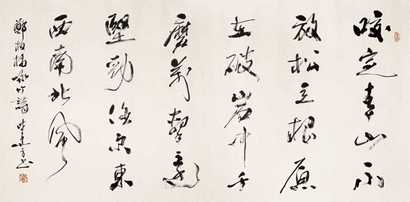 咬定青山不
放松立根原
在破岩中千
磨萬擊還
堅勁任尔東
西南北風
鄭板橋詠竹詩